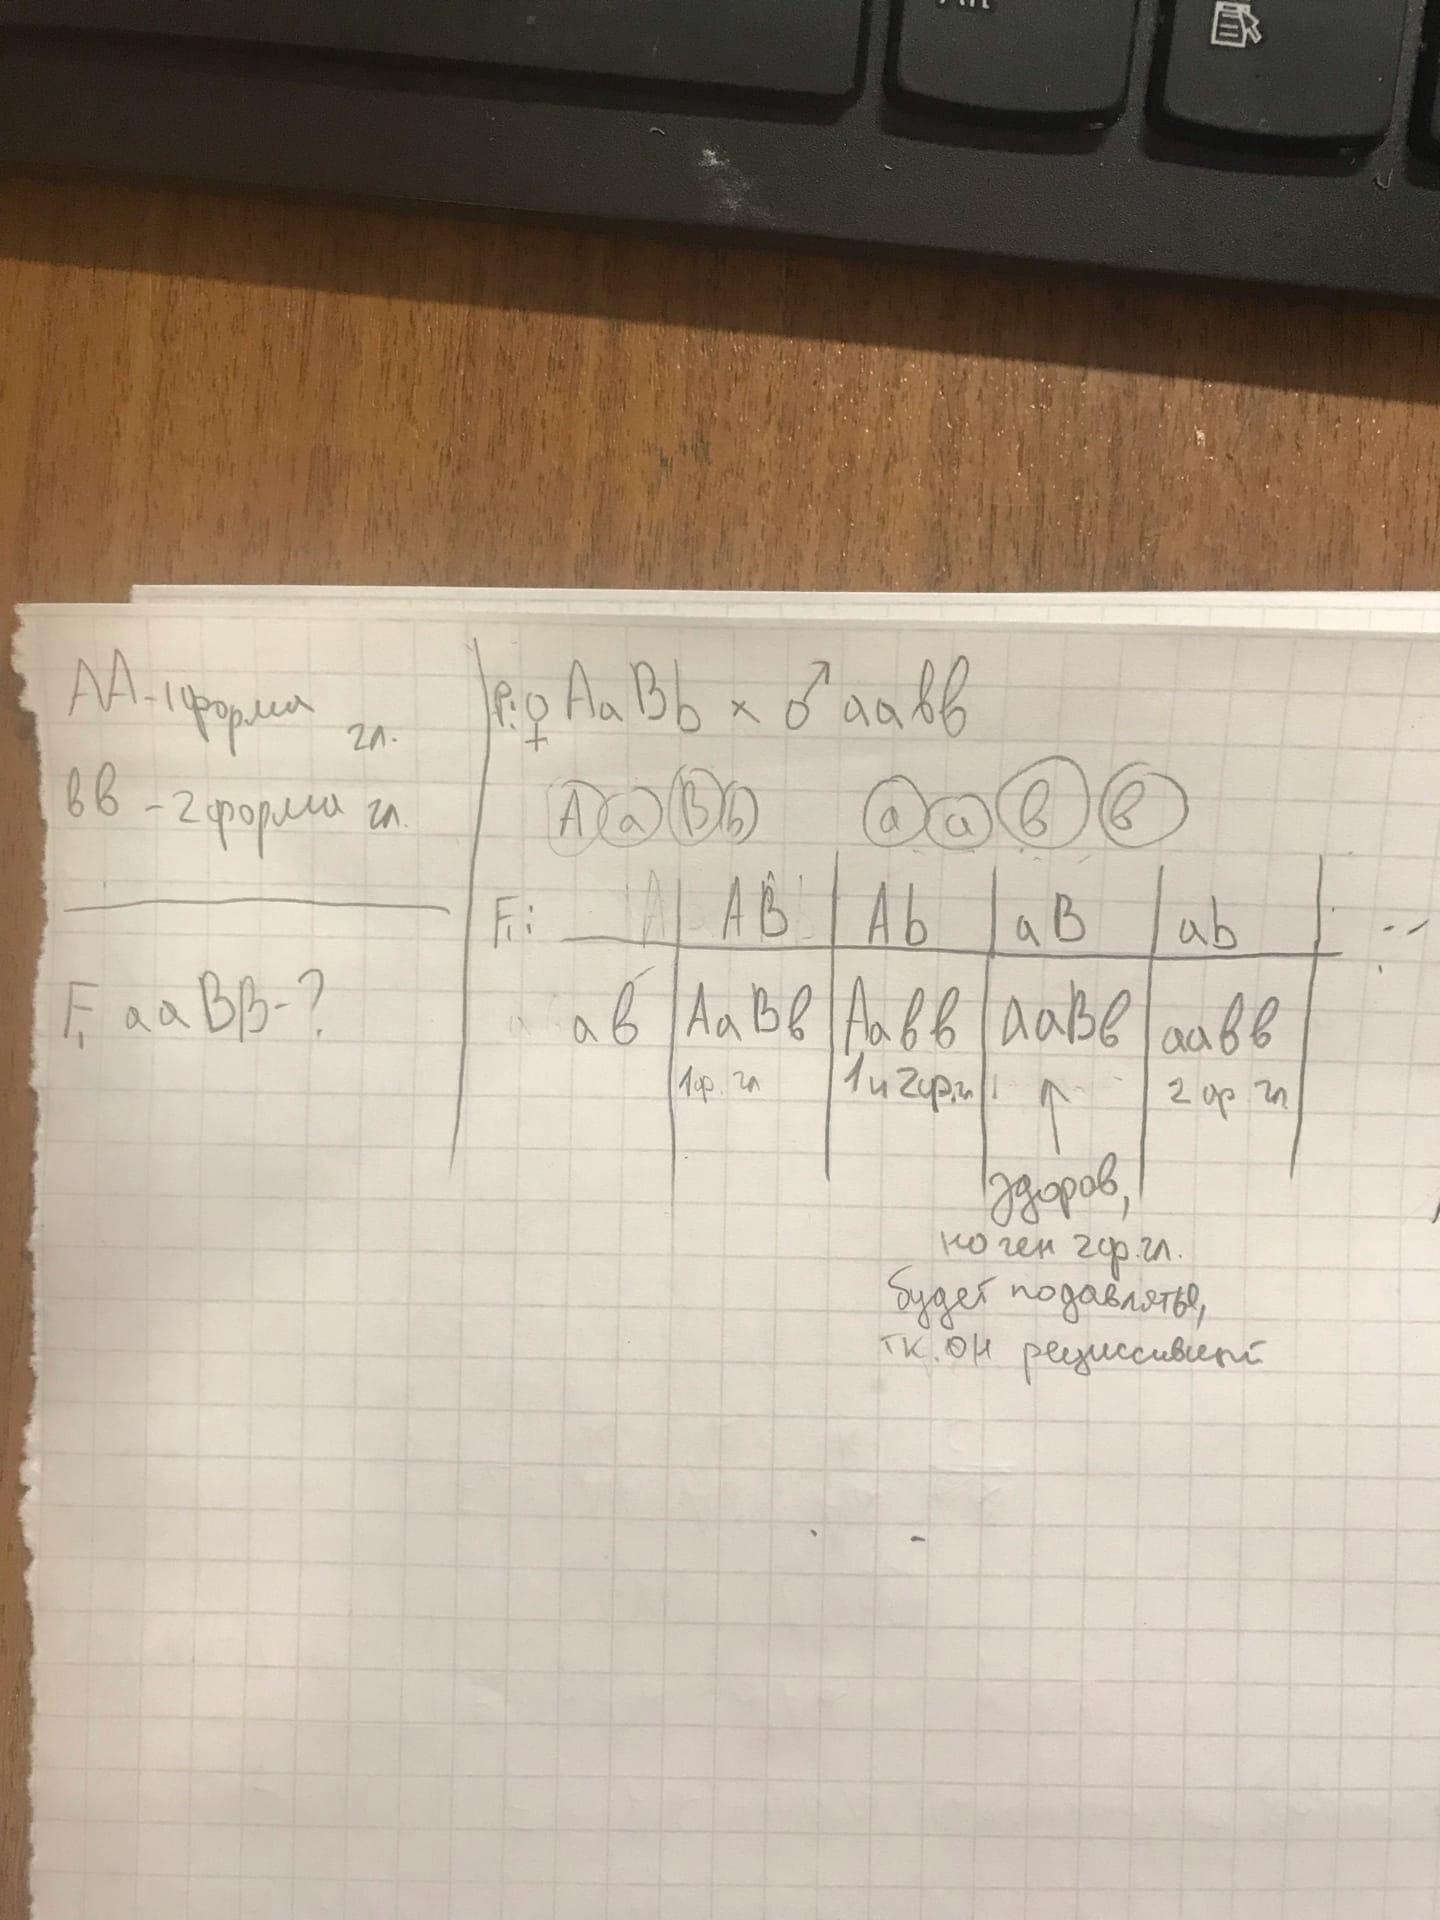 AA - 1 форма гл.
вв - 2 форма гл.
F₁ aaBB - ?
P: ♀ AaBb × ♂ aaвв
A a B b a a в в
F₁: AB Ab aB ab
aв AaBв Aaвв aaBв aaвв
1ф. гл 1 и 2ф.г. ↑ 2 ф гл
здоров,
но ген 2ф. гл.
будет подавляться,
тк. он рециссивный